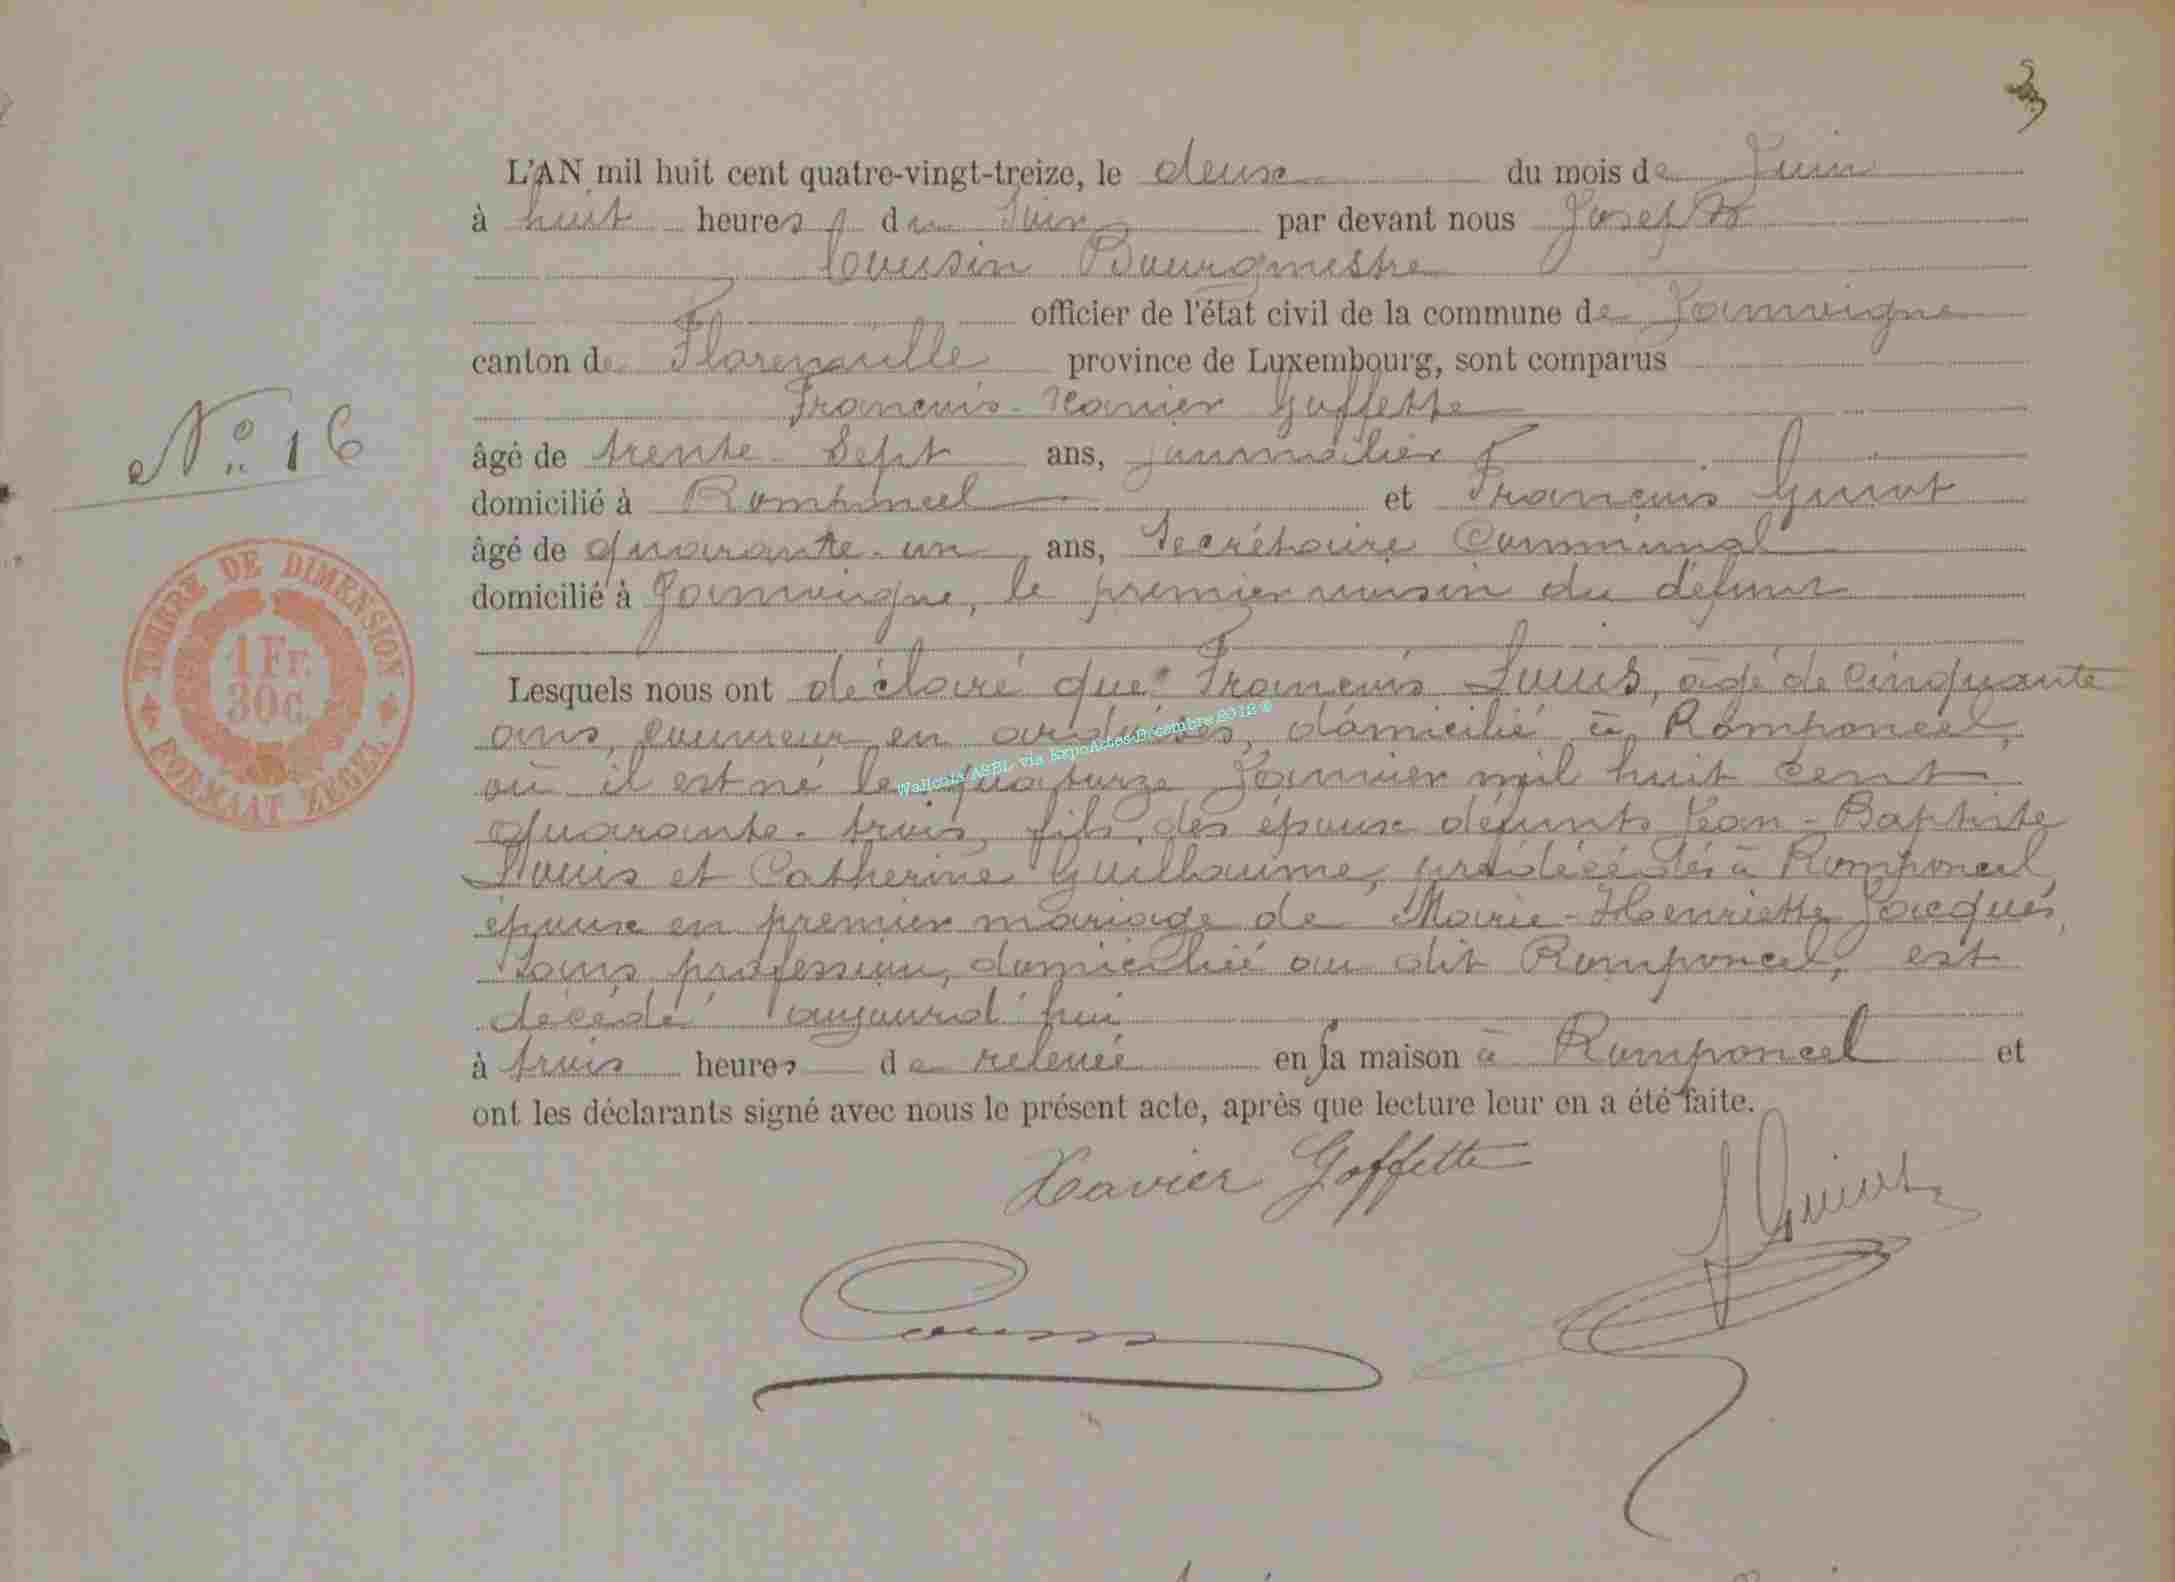 L'AN mil huit cent quatre-vingt-treize, le deux du mois de Juin
à huit heures du Soir par devant nous Joseph
Cousin Bourgmestre
officier de l'état civil de la commune de Jamoigne
canton de Florenville province de Luxembourg, sont comparus
François-Xavier Goffette
âgé de trente-Sept ans, journalier
N° 16
domicilié à Romponcel et François Guiot
âgé de quarante-un ans, Secrétaire Communal
TIMBRE DE DIMENSION
1 Fr.
30c.
FORMAAT ZEGEL
domicilié à Jamoigne, le premier voisin du défunt
Lesquels nous ont déclaré que François Louis, âgé de Cinquante
ans, couvreur en ardoises, domicilié à Romponcel,
où il est né le quatorze Janvier mil huit cent
quarante-trois, fils des époux défunts Jean-Baptiste
Louis et Catherine Guillaume, prédécédés à Romponcel,
époux en premier mariage de Marie-Henriette Jacques,
Sans profession, domiciliée au dit Romponcel, est
décédé aujourd'hui
à trois heures de relevée en sa maison à Romponcel et
ont les déclarants signé avec nous le présent acte, après que lecture leur en a été faite.
Wallonia ASBL via ExpoActes Décembre 2012 ©
Xavier Goffette
F Guiot